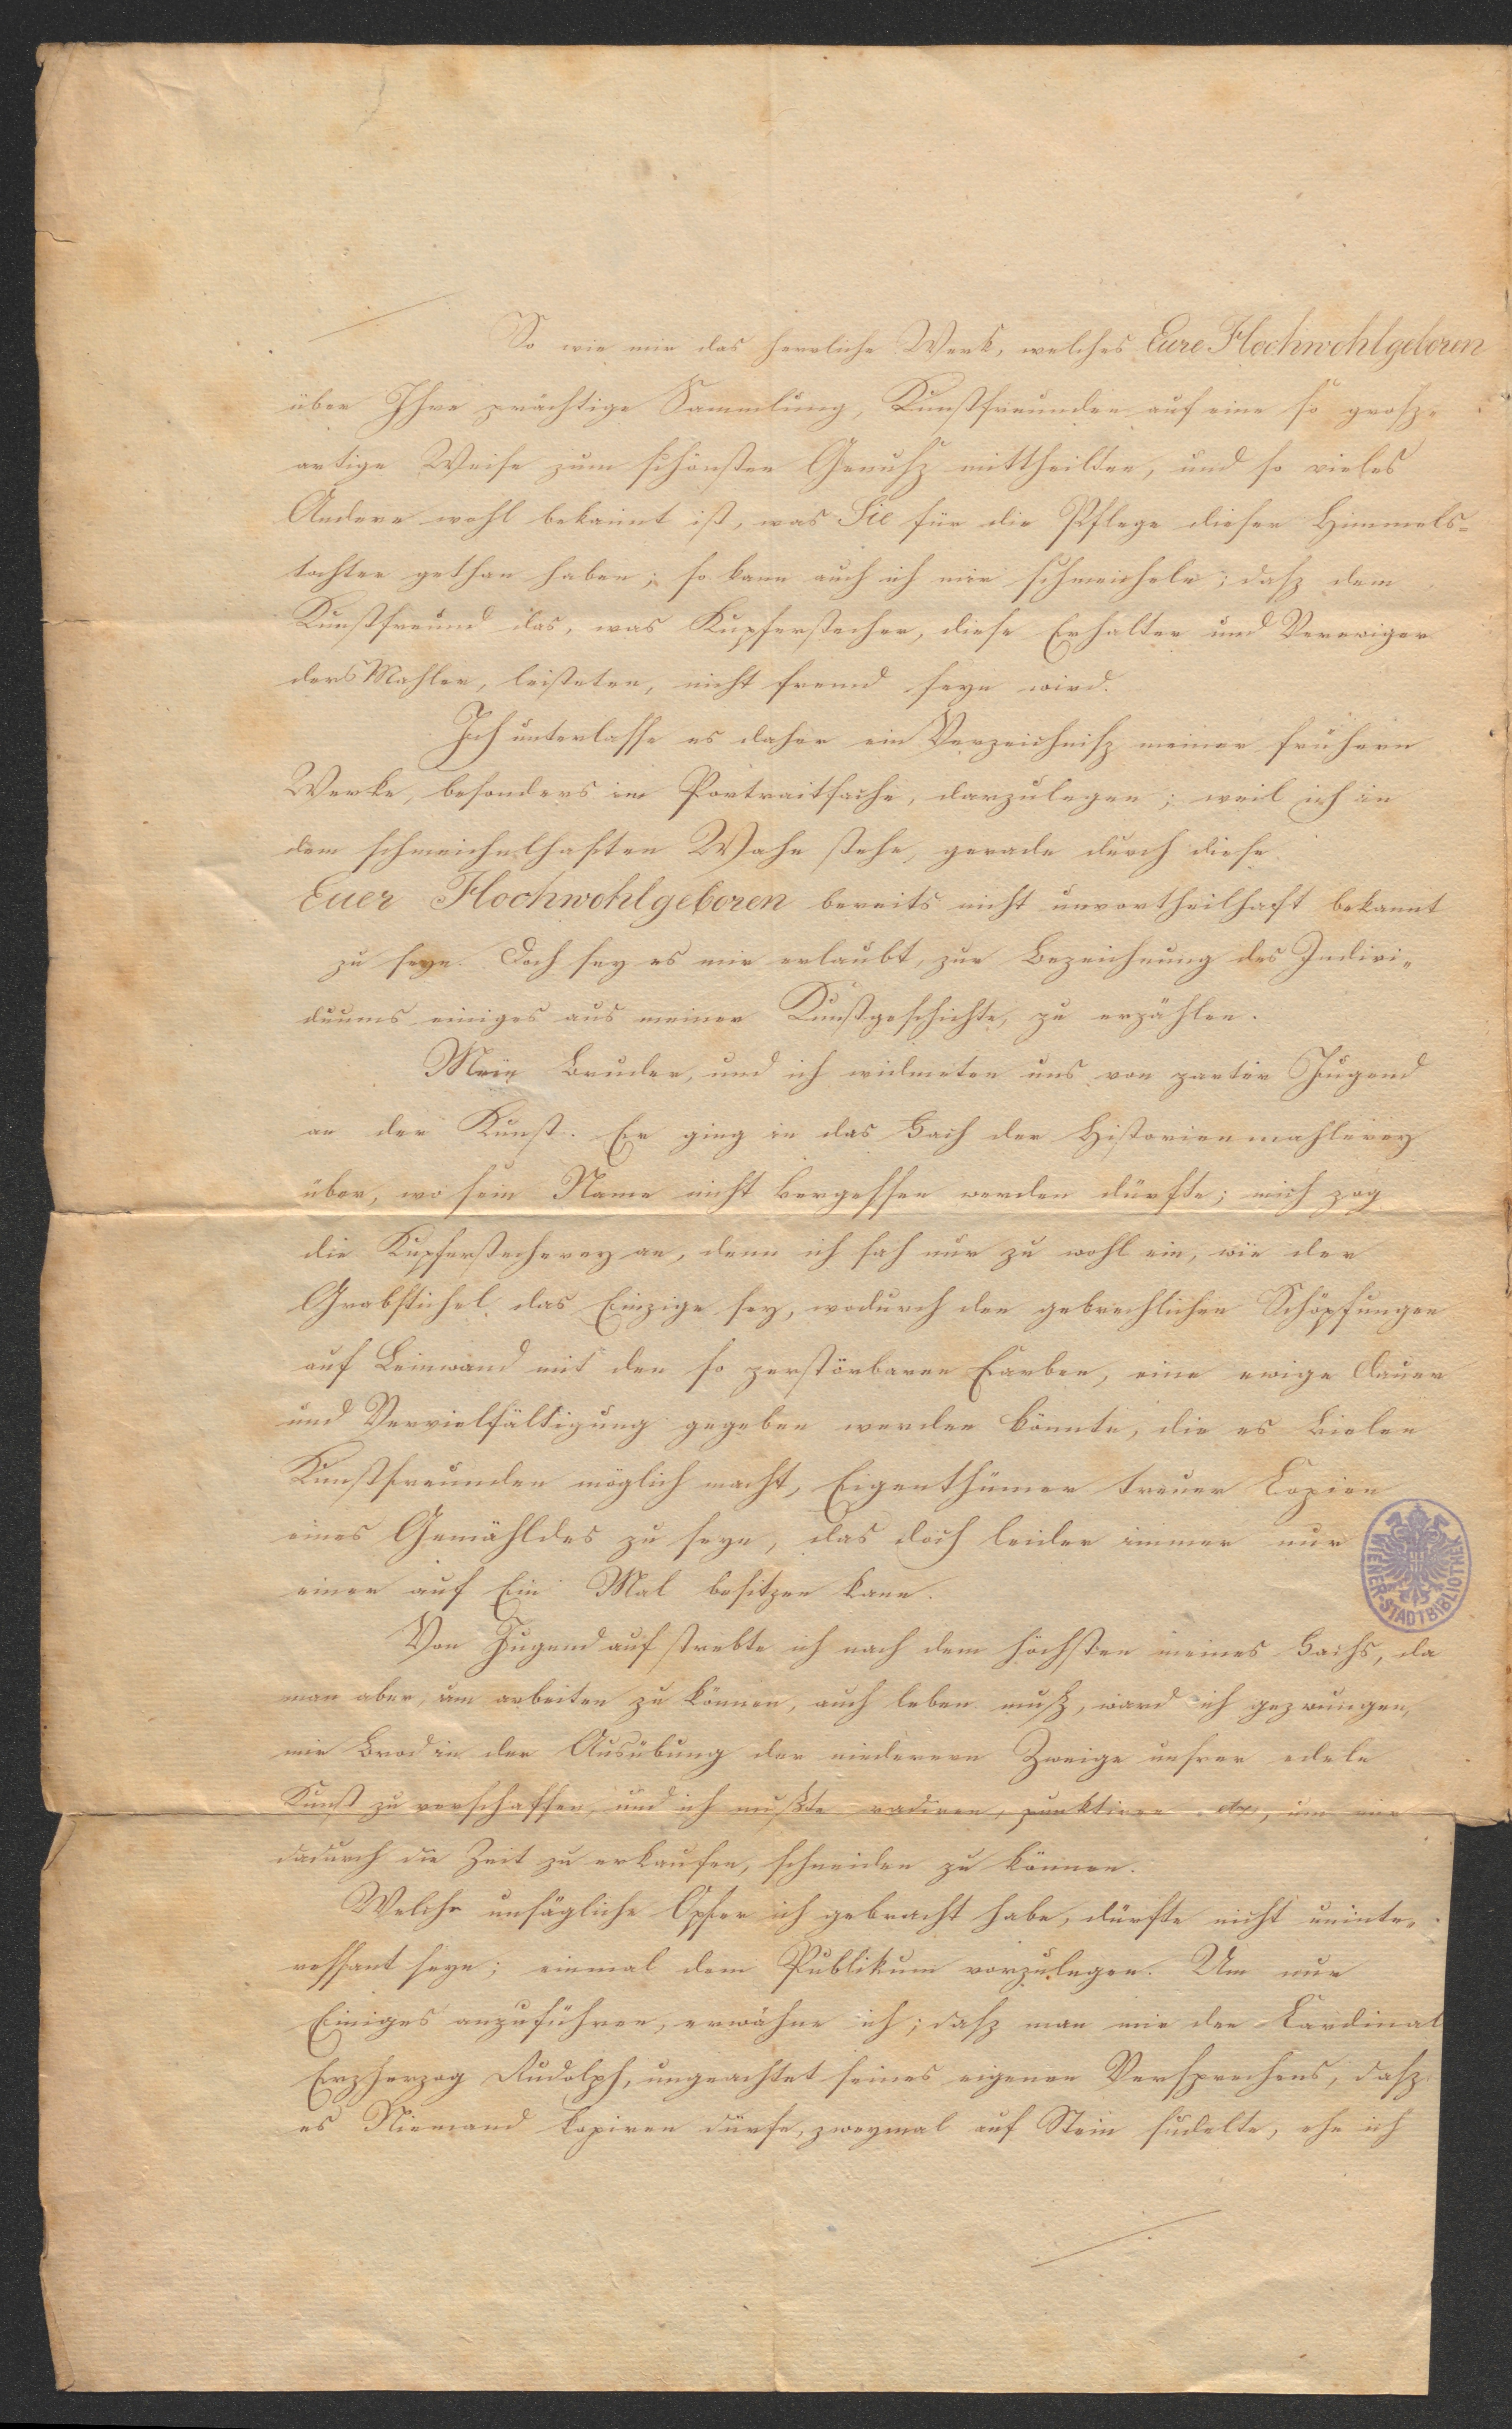 So wie mir das herrliche Werk, welches Eure Hochwohlgeboren
über Ihre prächtige Sammlung, Kunstfreunden auf eine so grosz-
artige Weise zum schönsten Genusz mittheilten, und so vieles
Andere wohl bekannt ist, was Sie für die Pflege dieser Himmels-
tochter gethan haben; so kann auch ich mir schmeicheln; dasz dem
Kunstfreund das, was Kupferstecher, diese Erhalter und Verewiger
der Mahler, leisteten, nicht fremd seyn wird.
Ich unterlasse es daher ein Verzeichnisz meiner frühern
Werke, besonders im Portraitfache, darzulegen; weil ich in
dem schmeichelhaften Wahn stehe, gerade durch diese
Euer Hochwohlgeboren bereits nicht unvortheilhaft bekannt
zu seyn. Doch sey es mir erlaubt, zur Bezeichnung des Indivi-
duums einiges aus meiner Kunstgeschichte, zu erzählen.
Mein Bruder, und ich widmeten uns von zarter Jugend
an der Kunst. Er ging in das Fach der Historienmahlerey
über, wo sein Name nicht vergessen werden dürfte; mich zog
die Kupferstecherey an, denn ich sah nur zu wohl ein, wie der
Grabstichel das Einzige sey, wodurch den gebrechlichen Schöpfungen
auf Leinwand mit den so zerstörbaren Farben, eine ewige Dauer
und Vervielfältigung gegeben werden könnte, die es Vielen
Kunstfreunden möglich macht, Eigenthümer treuer Copien
eines Gemähldes zu seyn, das doch leider immer nur
einer auf Ein Mal besitzen kann.
Von Jugend auf strebte ich nach dem höchsten meines Fachs, da
man aber, um arbeiten zu können, auch leben musz, ward ich gezwungen,
mir Brod in der Ausübung der niederern Zweige unsrer edeln
Kunst zu verschaffen, und ich muszte radiren, punktiren etc, um mir
dadurch die Zeit zu erkaufen, schneiden zu können.
Welche unsägliche Opfer ich gebracht habe, dürfte nicht uninte-
ressant seyn; einmal dem Publikum vorzulegen. Um nur
Einiges anzuführen, erwähne ich; dasz man mir den Cardinal
Erzherzog Rudolph, ungeachtet seines eigenen Versprechens, dasz
es Niemand kopiren dürfe, zweymal auf Stein sudelte, ehe ich
WIENER-STADTBIBLIOTHEK